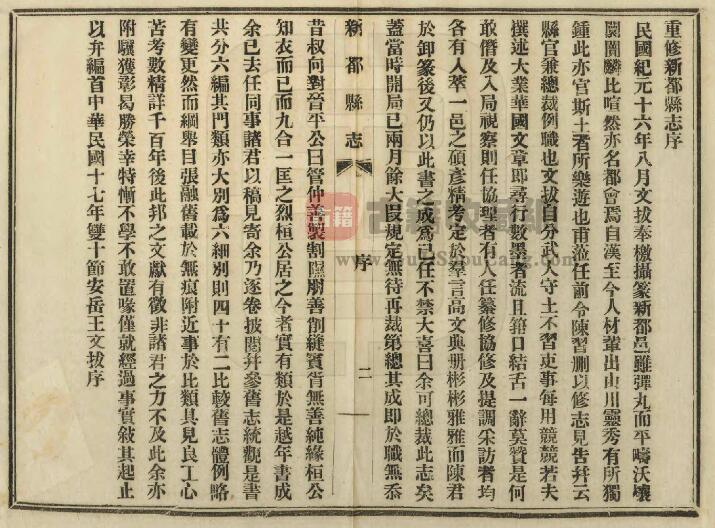 重修新都縣志序
民國紀元十六年八月文拔奉檄攝篆新都邑雖彈丸而平疇沃壤
闤闠麟比喧然亦名都會焉自漢至今人材輩出山川靈秀有所獨
鍾此亦官斯土者所樂遊也甫涖任前令陳習刪以修志見告幷云
縣官兼總裁例職也文拔自分武人守土不習吏事每用兢兢若夫
撰述大業華國文章即尋行數墨者流且箝口結舌一辭莫贊是何
敢僭及入局視察則任協理者有人任纂修協修及提調采訪者均
各有人萃一邑之碩彥精考定於羣言高文典册彬彬雅雅而陳君
於卸篆後又仍以此書之成爲己任不禁大喜曰余可總裁此志矣
蓋當時開局已兩月餘大段規定無待再裁第總其成即於職無忝
新都縣志
序
二
昔叔向對晉平公曰管仲善製割隰朋善削縫賓胥無善純緣桓公
知衣而已而九合一匡之烈桓公居之今者實有類於是越年書成
余已去任同事諸君以稿見寄余乃逐卷披閱幷參舊志統觀是書
共分六編其門類亦大別爲六細別則四十有二比較舊志體例略
有變更然而綱舉目張融舊載於無痕附近事於比類具見良工心
苦考數精詳千百年後此邦之文獻有徵非諸君之力不及此余亦
附驥獲彰曷勝榮幸特慚不學不敢置喙僅就經過事實敍其起止
以弁編首中華民國十七年雙十節安岳王文拔序
古籍
www.GujiShuCang.com